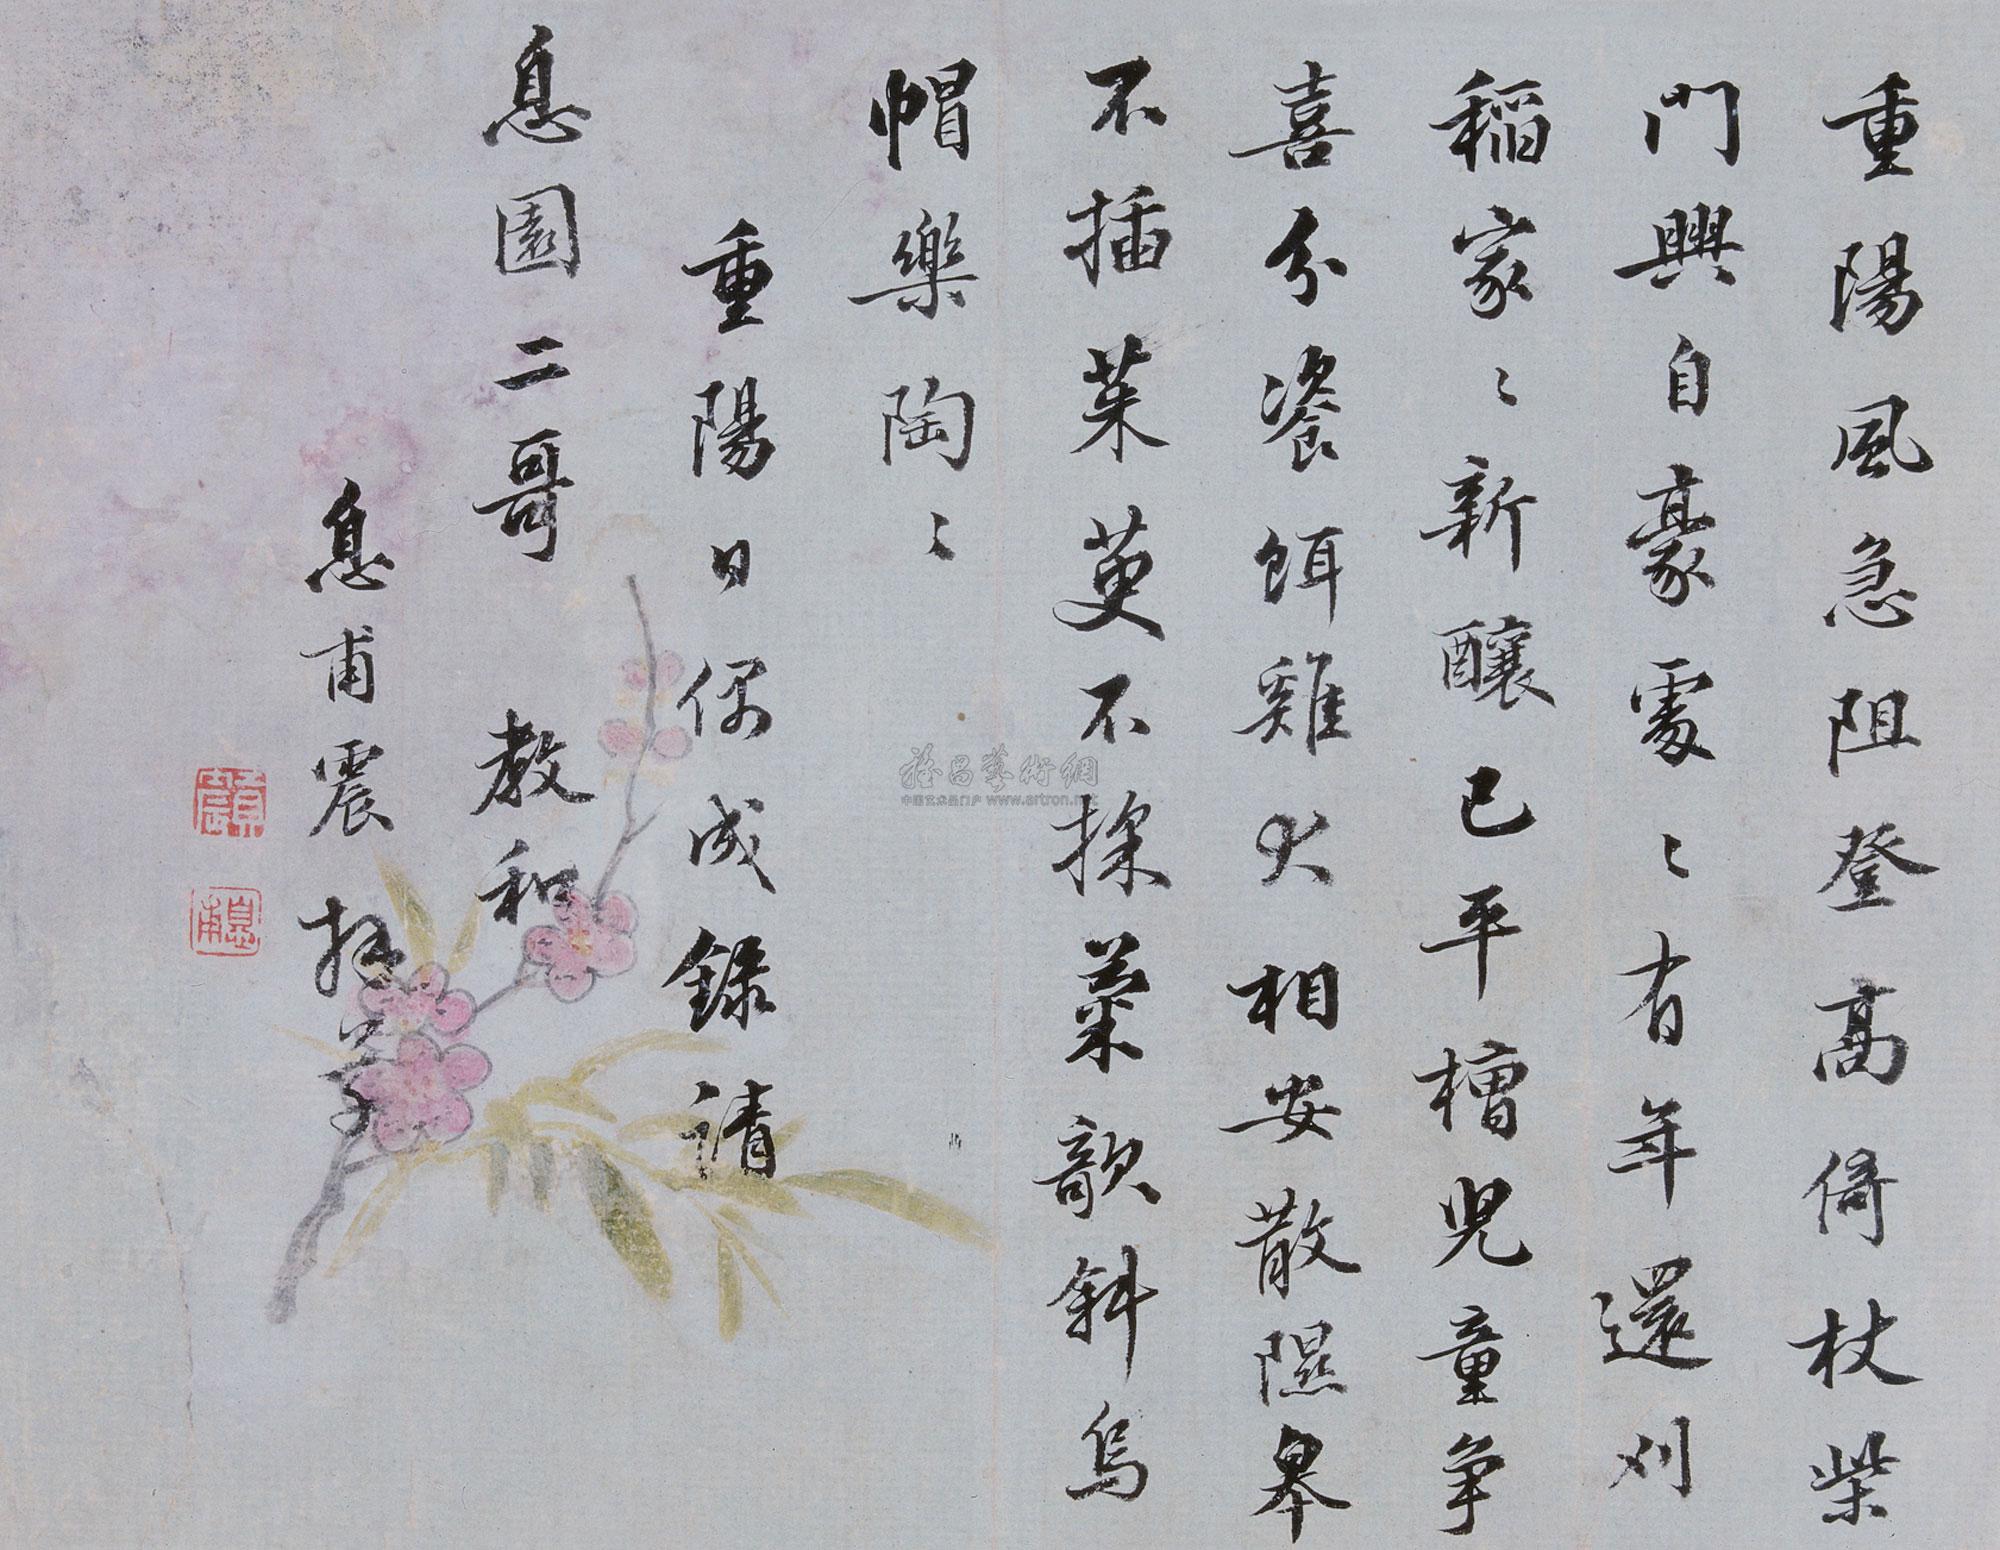 重陽風急阻登高倚杖柴
門興自豪處〻有年還刈
稻家〻新釀已平槽兒童爭
喜分餈餌雞犬相安散隰皋
不插茱萸不採菊歌斜烏
帽樂陶〻
重陽日偶成錄請
息園二哥 教和
息甫震拜草
息甫
雅昌藝術網
中国艺术品门户 www.artron.net